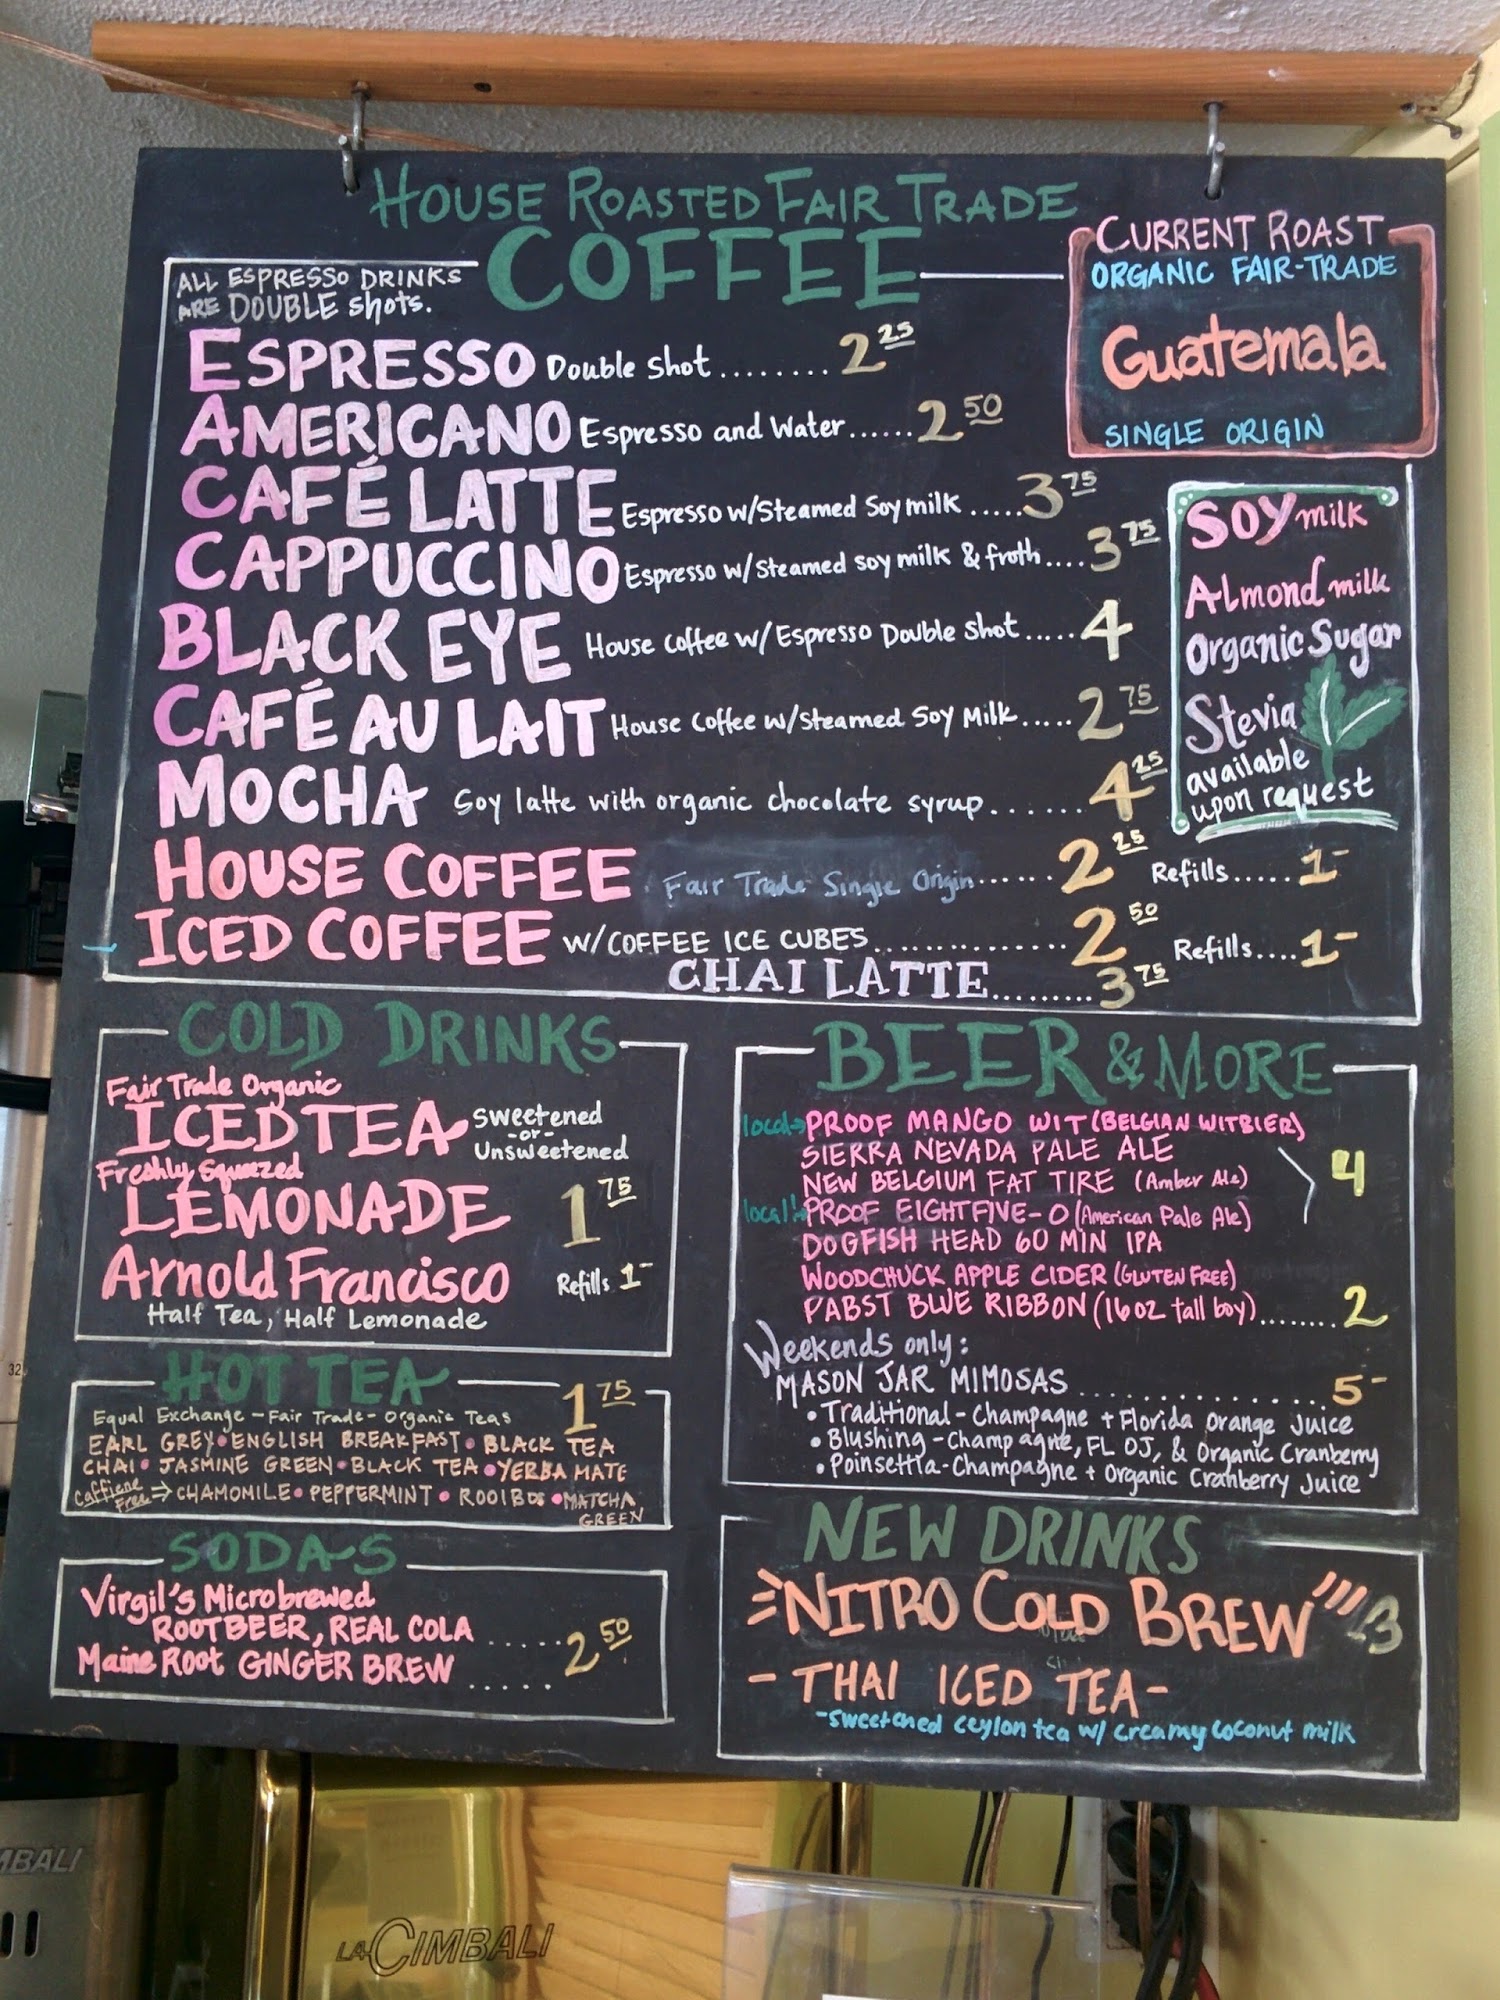 HOUSE ROASTED FAIR TRADE
COFFEE
ALL ESPRESSO DRINKS
ARE DOUBLE shots.
CURRENT ROAST
ORGANIC FAIR-TRADE
Guatemala
SINGLE ORIGIN
ESPRESSO Double Shot........ 2 25
AMERICANO Espresso and Water...... 2 50
CAFÉ LATTE Espresso w/Steamed Soy milk ..... 3 75
CAPPUCCINO Espresso w/Steamed soy milk & froth.... 3 75
BLACK EYE House Coffee w/ Espresso Double Shot..... 4
CAFÉ AU LAIT House Coffee w/Steamed Soy Milk..... 2 75
MOCHA Soy latte with organic chocolate syrup...... 4 25
HOUSE COFFEE Fair Trade Single Origin...... 2 25 Refills..... 1-
ICED COFFEE W/COFFEE ICE CUBES.............. 2 50 Refills.... 1-
CHAI LATTE......... 3 75
SOY milk
Almond milk
Organic Sugar
Stevia
available
upon request
COLD DRINKS
Fair Trade Organic
ICED TEA Sweetened
-or-
Unsweetened
Freshly Squeezed
LEMONADE 1 75
Arnold Francisco Refills 1-
Half Tea, Half Lemonade
HOT TEA 1 75
Equal Exchange - Fair Trade - Organic Teas
EARL GREY • ENGLISH BREAKFAST • BLACK TEA
CHAI • JASMINE GREEN • BLACK TEA • YERBA MATE
Caffiene Free → CHAMOMILE • PEPPERMINT • ROOIBOS • MATCHA
GREEN
SODAS
Virgil's Microbrewed
ROOTBEER, REAL COLA ...... 2 50
Maine Root GINGER BREW ......
BEER & MORE
local → PROOF MANGO WIT (BELGIAN WITBIER)
SIERRA NEVADA PALE ALE
NEW BELGIUM FAT TIRE (Amber Ale) 4
local! → PROOF EIGHTFIVE-O (American Pale Ale)
DOGFISH HEAD 60 MIN IPA
WOODCHUCK APPLE CIDER (GLUTEN FREE)
PABST BLUE RIBBON (16 oz tall boy)........ 2
Weekends only:
MASON JAR MIMOSAS ............... 5-
• Traditional - Champagne + Florida Orange Juice
• Blushing - Champagne, FL OJ, & Organic Cranberry
• Poinsettia - Champagne + Organic Cranberry Juice
NEW DRINKS
NITRO COLD BREW 3
- THAI ICED TEA -
- sweetened ceylon tea w/ creamy coconut milk
LA CIMBALI
MBALI
32